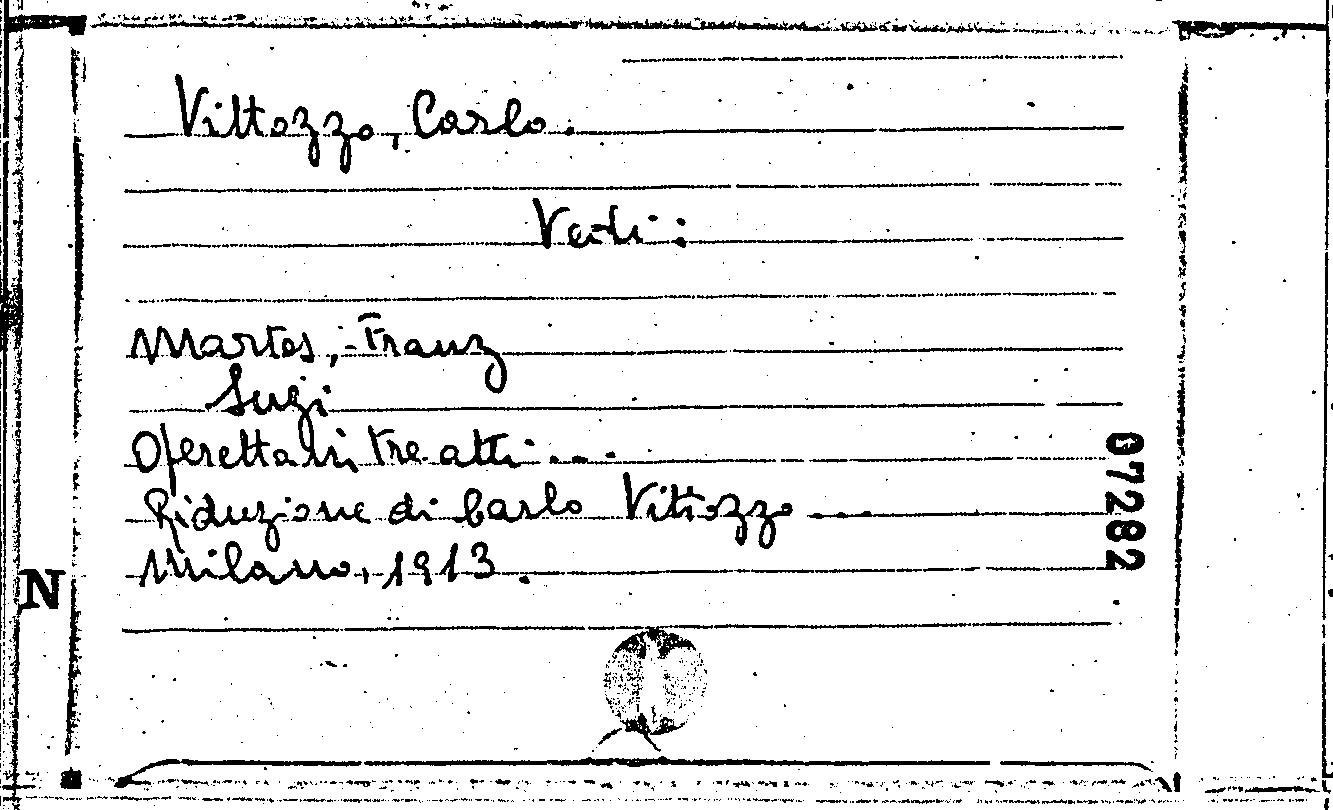 Vittozzo, Carlo.
Vedi:
Martos, Franz
Suzi
Operetta in tre atti...
Riduzione di Carlo Vittozzo...
Milano, 1913.
07282
N